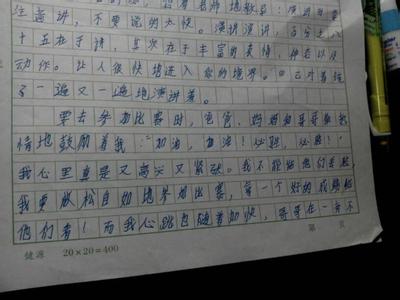 注意讲，不要说的太快。演讲演讲，百分之八
十五在于讲，其次在于丰富的表情，神态以及
动作。让人很快地进入你的境界。”已对着镜
了一遍又一遍地演讲着。
要去参加比赛时，爸爸、妈妈和哥哥都热
情地鼓励着我：“加油，加油！必胜，必胜！”
我心里真是又高兴又紧张。我不能给他们丢脸，
我要放松自如地参加比赛，拿一个好的成绩给
他们看！而我心跳也随着加快，哥哥在一旁不
健源 20×20=400 第 页